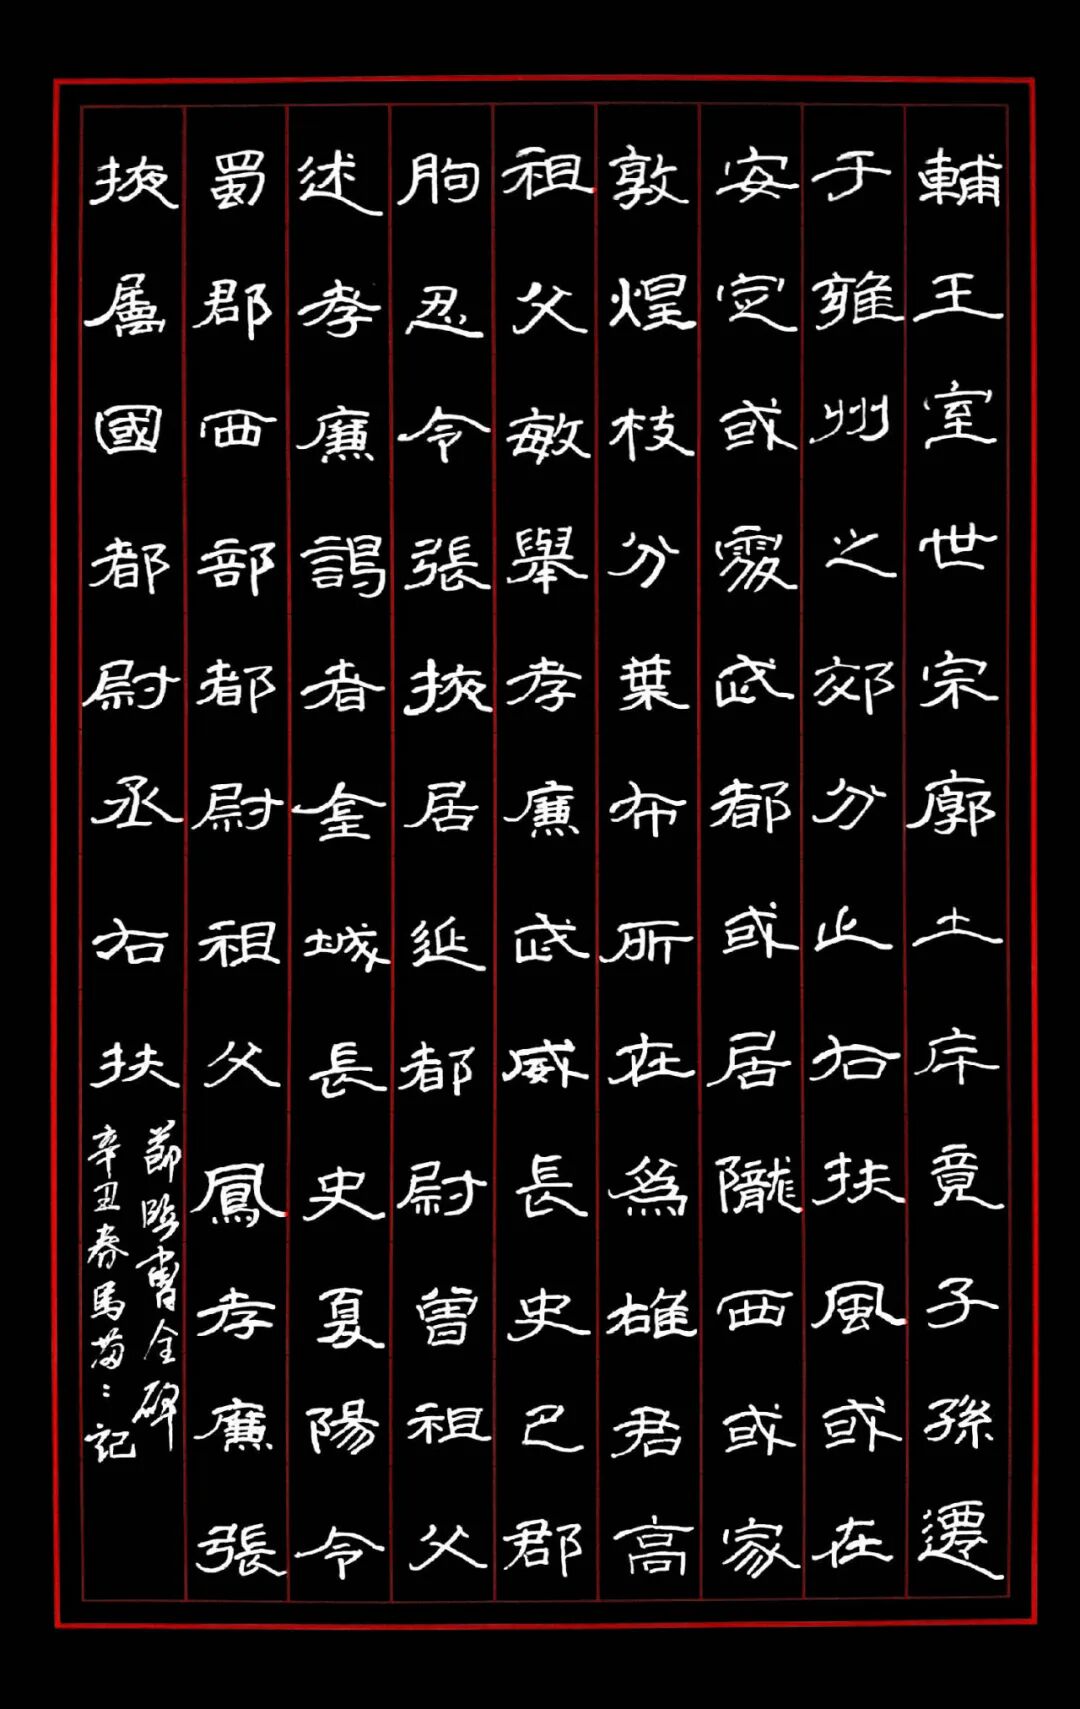 輔王室世宗廓土斥竟子孫遷
于雍州之郊分止右扶風或在
安定或處武都或居隴西或家
敦煌枝分葉布所在為雄君高
祖父敏舉孝廉武威長史巴郡
朐忍令張掖居延都尉曾祖父
述孝廉謁者金城長史夏陽令
蜀郡西部都尉祖父鳳孝廉張
掖屬國都尉丞右扶
節臨曹全碑
辛丑春馬萬〻記